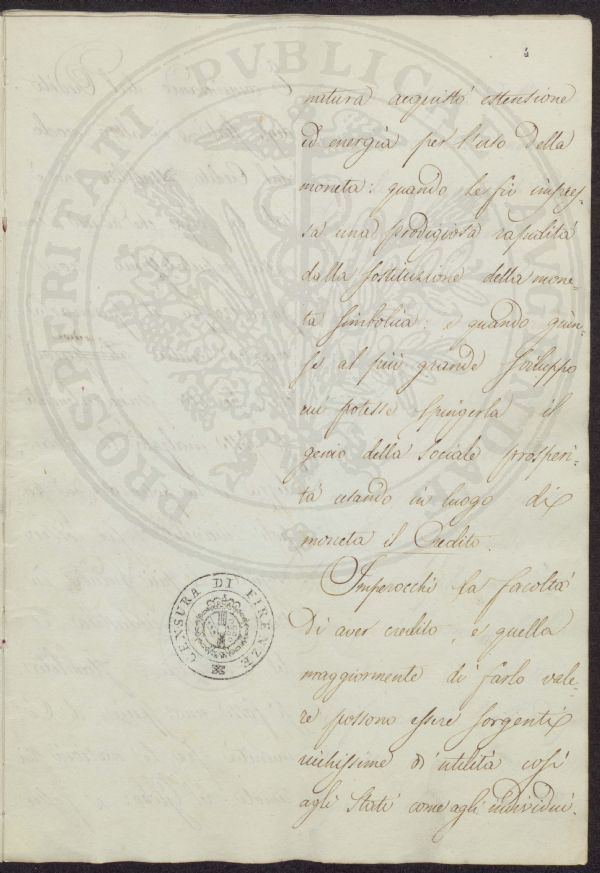 4
natura acquistò estensione
ed energia per l'uso della
moneta: quando le fù impres-
sa una prodigiosa rapidità
dalla sostituzione della mone-
ta simbolica: e quando giun-
se al più grande sviluppo
cui potesse spingerla il
genio della sociale prosperi-
tà usando in luogo di
moneta il Credito.
Imperocchè la facoltà
di aver credito, e quella
maggiormente di farlo vale-
re possono essere sorgenti
ricchissime d'utilità così
agli Stati come agli individui.
CENSURA DI FIRENZE
PROSPERITATI PVBLICAE AVGENDAE